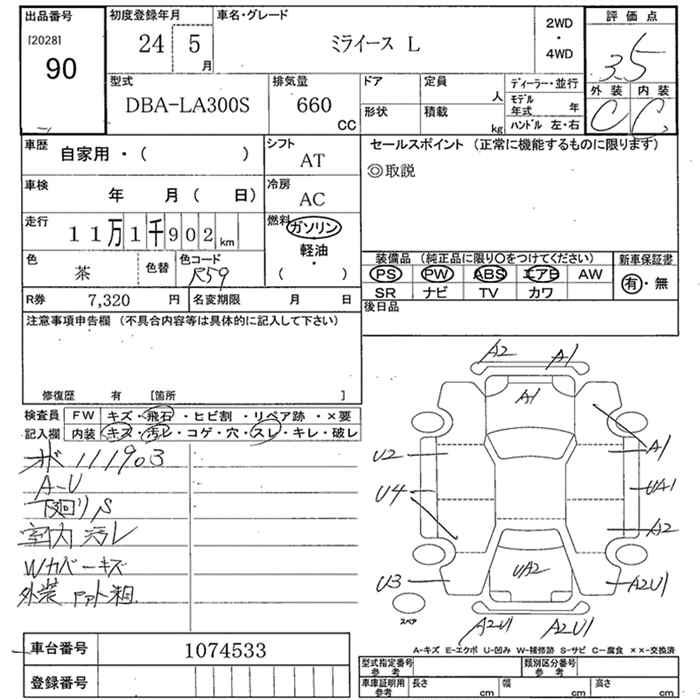 出品番号
[2028]
90
初度登録年月
24 5 月
車名・グレード
ミライース L
2WD
・
4WD
評価点
3.5
外装 内装
C C
型式
DBA-LA300S
排気量
660 CC
ドア
定員 人
形状
積載 kg
ディーラー・並行
モデル年式 年
ハンドル 左・右
車歴
自家用・( )
シフト
AT
車検
年 月( 日)
冷房
AC
走行
11万1千902km
燃料
ガソリン
軽油
・
( )
色
茶
色替
色コード
R59
R券 7,320 円
名変期限 月 日
セールスポイント (正常に機能するものに限ります)
◎取説
装備品 (純正品に限り○をつけてください)
PS PW ABS エアB AW
SR ナビ TV カワ
新車保証書
有・無
後日品
注意事項申告欄 (不具合内容等は具体的に記入して下さい)
修復歴 有 [箇所 ]
検査員
記入欄
FW キズ・飛石・ヒビ割・リペア跡・×要
内装 キズ・汚レ・コゲ・穴・スレ・キレ・破レ
111903
A-U
下廻りS
室内汚レ
Wカバーキズ
外装
A2 A1
A1
U2
A1
U4
UA1
A2
UA2
U3
A2U1
A2U1 A2U1
スペア
A-キズ E-エクボ U-凹み W-補修跡 S-サビ C-腐食 ××-交換済
車台番号 1074533
登録番号
型式指定番号
参考
類別区分番号
参考
車庫証明用
参考
長さ cm
幅 cm
高さ cm